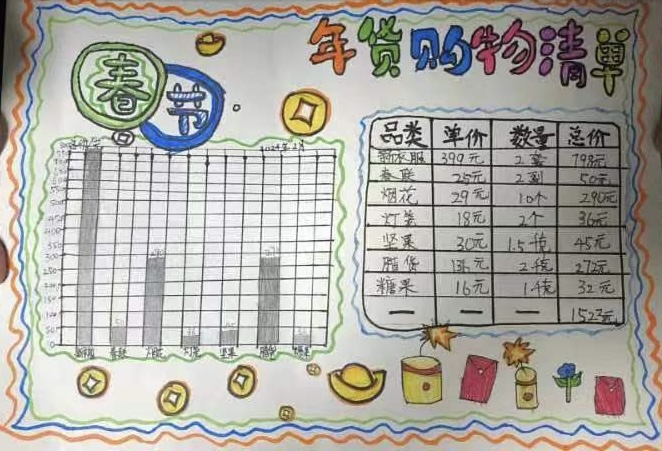 年货购物清单
春节
2024年2月
品类 单价 数量 总价
新衣服 399元 2套 798元
春联 25元 2副 50元
烟花 29元 10个 290元
灯笼 18元 2个 36元
坚果 30元 1.5千克 45元
腊货 136元 2千克 272元
糖果 16元 千克 32元
— — — 1523元
450
350
300
250
200
150
100
50
0
春联 烟花 灯笼 坚果 腊货 糖果